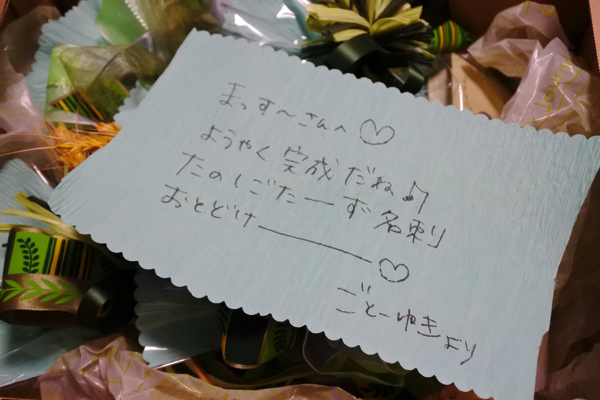 まっす〜さんへ♡
ようやく完成だね♪
たのしごたーず名刺
おとどけー♡
ごとーゆきより